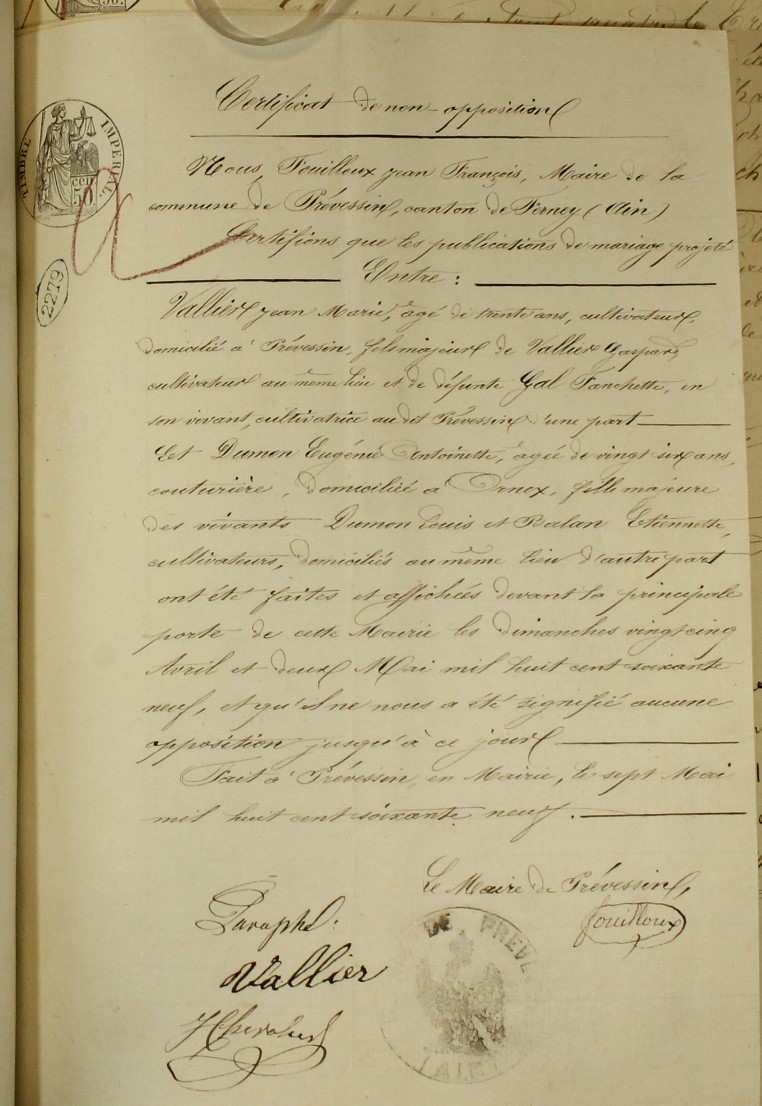 Certificat de non-opposition
Nous, Fouilloux Jean François, Maire de la
commune de Prévessin, canton de Ferney (Ain)
Certifions que les publications de mariage projeté
Entre :
Vallier Jean Marie, âgé de trente ans, cultivateur,
domicilié à Prévessin, fils majeur de Vallier Gaspard,
cultivateur au même lieu et de défunte Gal Fanchette, en
son vivant, cultivatrice au dit Prévessin d'une part
Et Dumon Eugénie Antoinette, âgée de vingt six ans,
couturière, domiciliée à Ornex, fille majeure
des vivants Dumon Louis et Balan Etiennette,
cultivateurs, domiciliés au même lieu d'autre part
ont été faites et affichées devant la principale
porte de cette Mairie les dimanches vingt cinq
Avril et deux Mai mil huit cent soixante
neuf, et qu'il ne nous a été signifié aucune
opposition jusqu'à ce jour
Fait à Prévessin, en Mairie, le sept Mai
mil huit cent soixante neuf.
Le Maire de Prévessin,
Fouilloux
Paraphé :
Vallier
TIMBRE IMPERIAL
50 cen
2279
DE PREVE
(AIN)